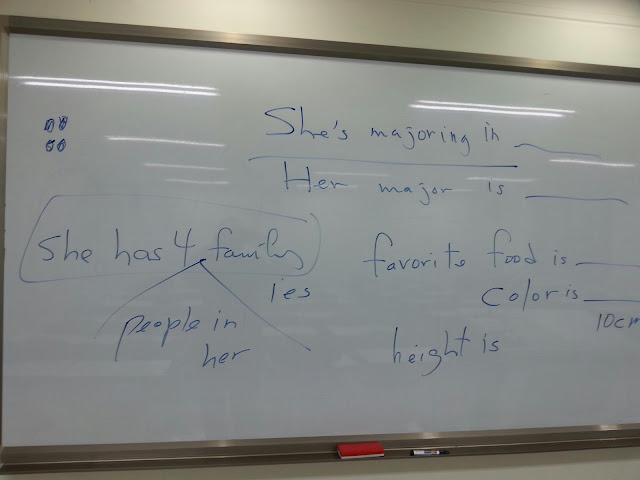 She's majoring in
Her major is
She has 4 family
ies
people in
her
favorite food is
color is
10cm
height is